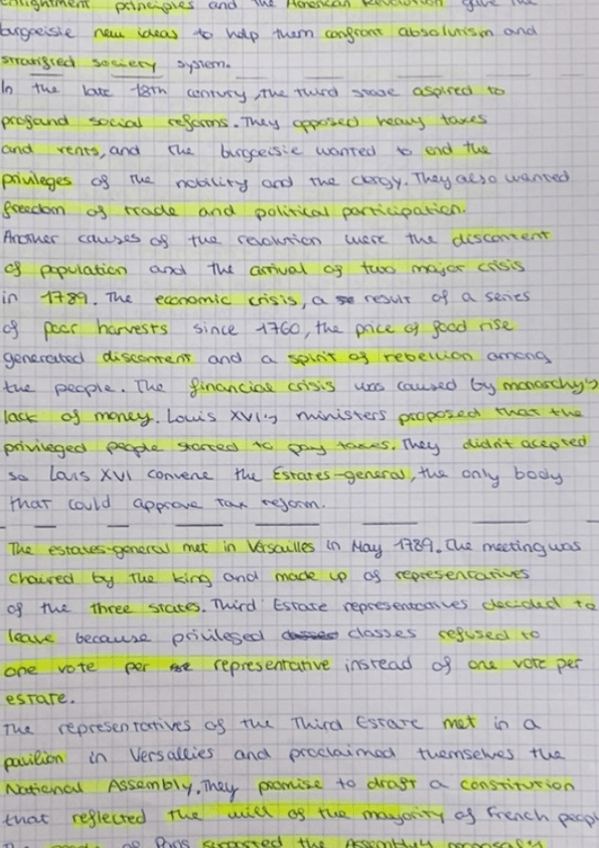 enlightment principles and the American Revolution gave the
burgoeisie new ideas to help them confront absolutism and
system.
In the late 18th century, the third state aspired to
profound social reforms. They opposed heavy taxes
and rents, and the burgoeisie wanted to end the
privileges of the nobility and the clergy. They also wanted
freedom of trade and political participation.
Another causes of the revolution were the discontent
of population and the arrival of two major crisis
in 1789. The economic crisis, a result of a series
of poor harvests since 1760, the price of food rise
generated discontent and a spirit of rebellion among
the people. The financial crisis was caused by monarchy's
lack of money. Louis XVI's ministers proposed that the
privileged people started to pay taxes. They didn't acepted
so Louis XVI convene the Estates-general, the only body
that could approve tax reform.
The estates-general met in Versailles in May 1789. The meeting was
chaired by the king and made up of representatives
of the three states. Third Estate representatives decided to
leave because privileged classes refused to
one vote per representative instead of one vote per
estate.
The representatives of the Third Estate met in a
pavilion in Versallies and proclaimed themselves the
National Assembly. They promise to draft a constitution
that reflected the will of the majority of French peopl
of Paris supported the Assembly's proposals